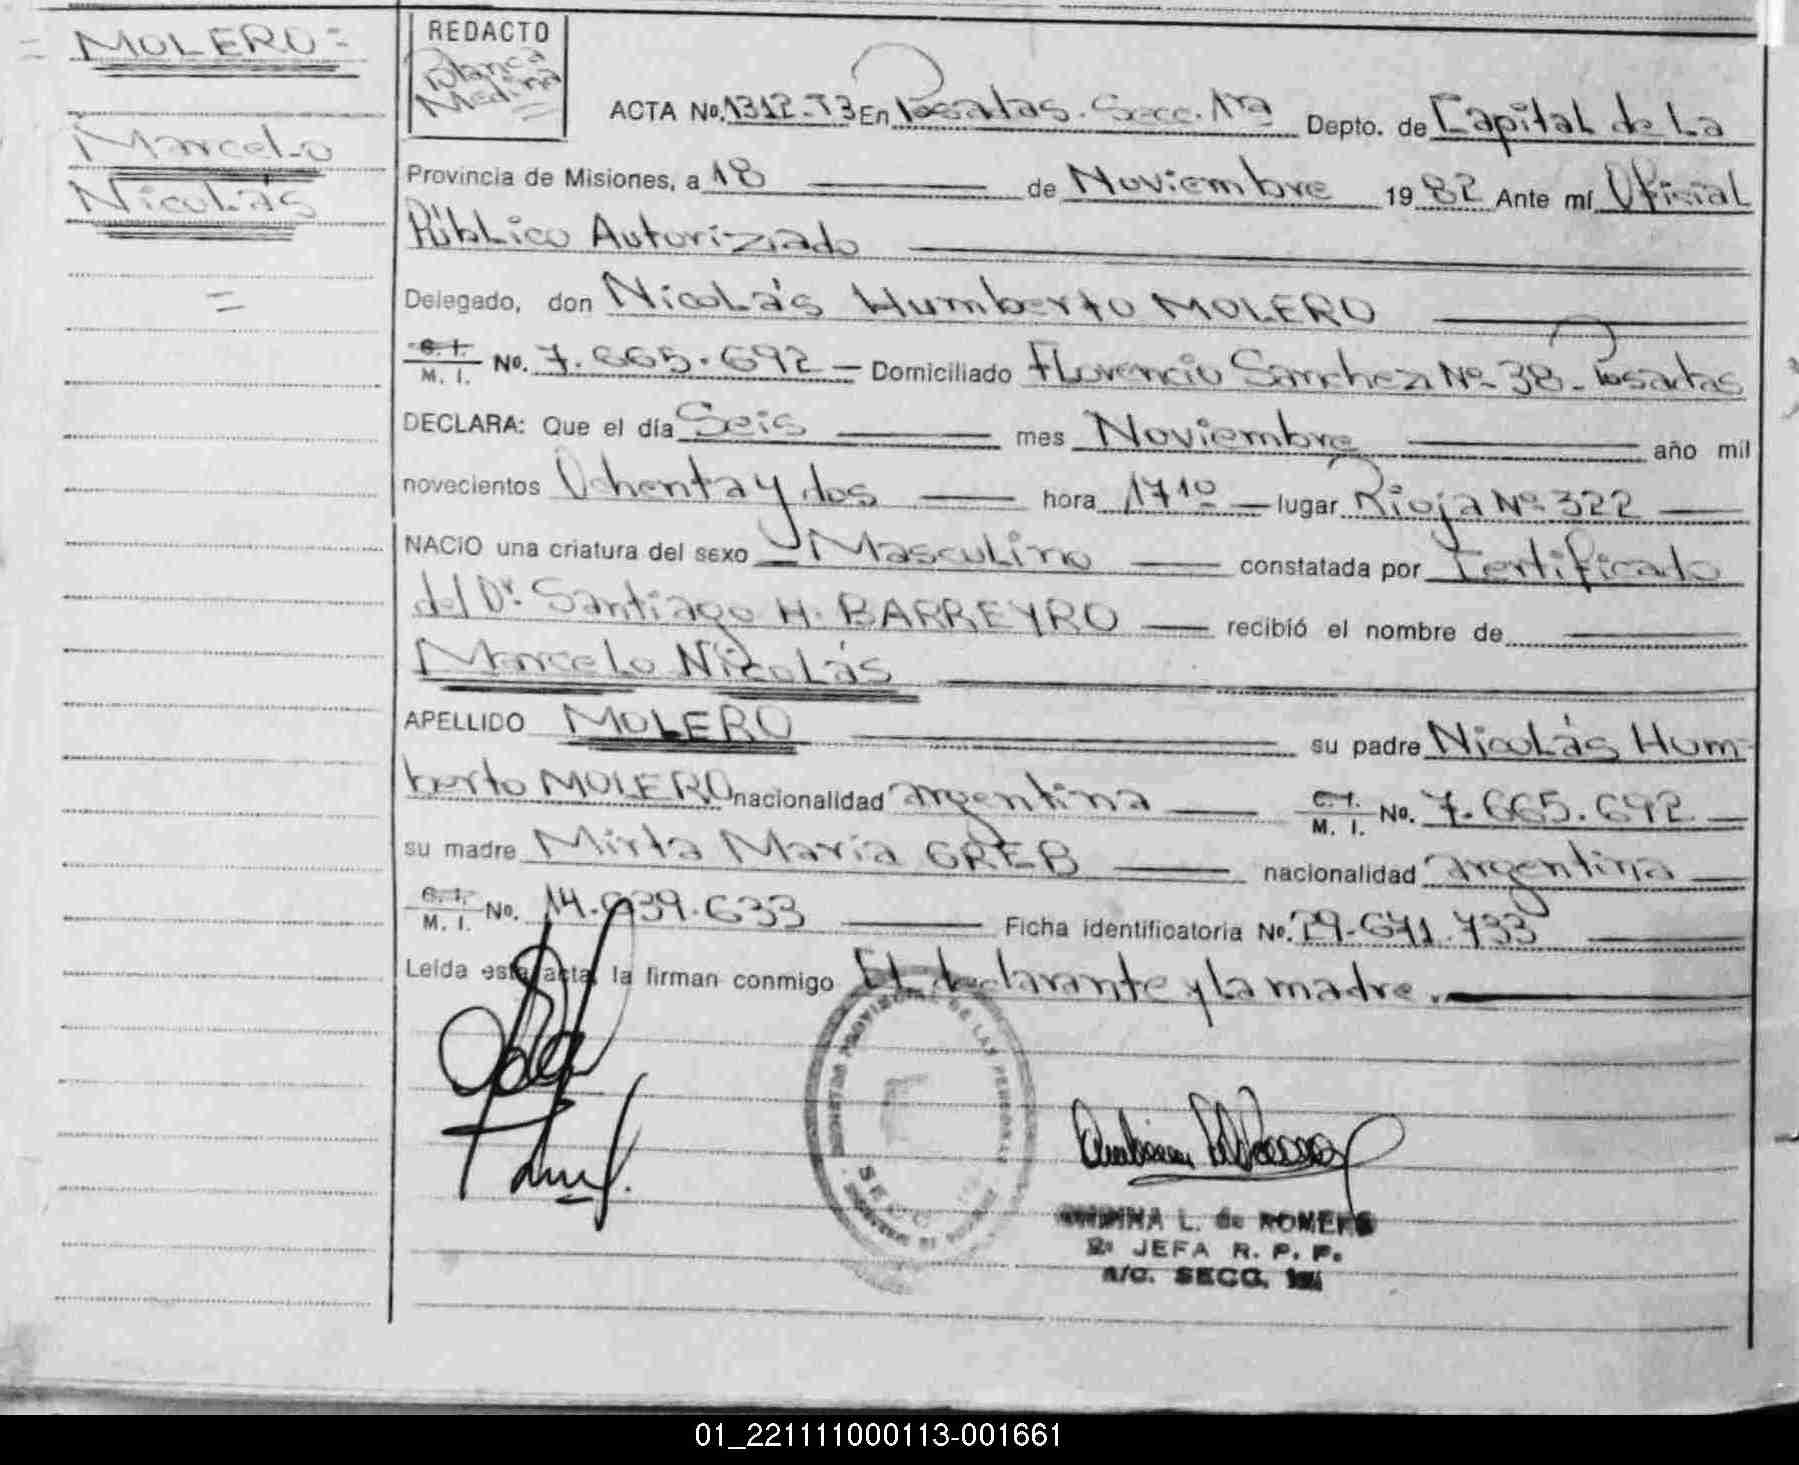 = MOLERO =
Marcelo
Nicolás
=
REDACTO
Blanca
Medina
ACTA No. 1312-T3 En Posadas. Secc. 1ra Depto. de Capital de La
Provincia de Misiones, a 18 de Noviembre 1982 Ante mí Oficial
Público Autoriziado
Delegado, don Nicolás Humberto MOLERO
C. I.
M. I. No. 7.665.692 — Domiciliado Florencio Sánchez Nº 38 - Posadas
DECLARA: Que el día Seis mes Noviembre año mil
novecientos Ochenta y dos hora 17 10 — lugar Rioja Nº 322
NACIO una criatura del sexo Masculino constatada por Certificado
del Dr. Santiago H. BARREYRO recibió el nombre de
Marcelo Nicolás
APELLIDO MOLERO su padre Nicolás Hum-
berto MOLERO nacionalidad argentina C. I.
M. I. No. 7.665.692
su madre Mirta María GREB nacionalidad argentina
C. I.
M. I. No. 14.939.633 Ficha identificatoria No. 29.671.733
Leída esta acta, la firman conmigo El declarante y la madre.
REGISTRO PROVINCIAL DE LAS PERSONAS
L. de ROMERO
2ª JEFA R. P. P.
a/c. SECC. 1ra
01_221111000113-001661